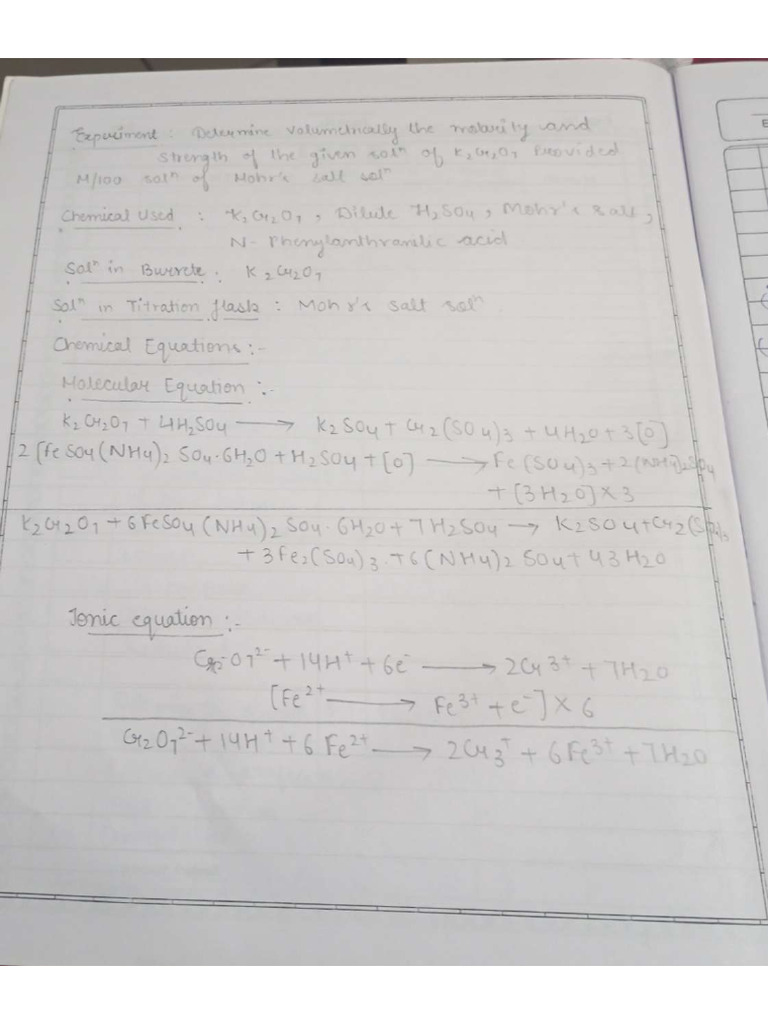 Experiment : Determine volumetrically the molarity and
strength of the given solⁿ of K₂Cr₂O₇ Provided
M/100 solⁿ of Mohr's salt solⁿ
Chemical Used : K₂Cr₂O₇, Dilute H₂SO₄, Mohr's salt,
N- Phenylanthranilic acid
Solⁿ in Burrete : K₂Cr₂O₇
Solⁿ in Titration flask : Mohr's salt solⁿ
Chemical Equations :-
Molecular Equation :-
K₂Cr₂O₇ + 4H₂SO₄ ⟶ K₂SO₄ + Cr₂(SO₄)₃ + 4H₂O + 3[O]
2 [FeSO₄(NH₄)₂ SO₄·6H₂O + H₂SO₄ + [O] ⟶ Fe(SO₄)₃ + 2(NH₄)₂SO₄
+ [3H₂O] × 3
K₂Cr₂O₇ + 6FeSO₄(NH₄)₂ SO₄·6H₂O + 7H₂SO₄ → K₂SO₄ + Cr₂(SO₄)₃
+ 3Fe₂(SO₄)₃ + 6(NH₄)₂ SO₄ + 43H₂O
Ionic equation :-
O₇²⁻ + 14H⁺ + 6e⁻ ⟶ 2Cr³⁺ + 7H₂O
[Fe²⁺ ⟶ Fe³⁺ + e⁻] × 6
Cr₂O₇²⁻ + 14H⁺ + 6Fe²⁺ ⟶ 2Cr₃⁺ + 6Fe³⁺ + 7H₂O